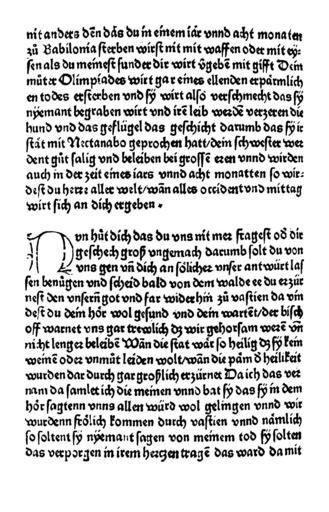 nit anders dēn das du in einem iar vnnd acht monaten
zů Babilonia sterben wirst nit mit waffen oder mit ey-
sen als du meinest sunder dir wirt v̈geben mit gifft Dein
můter Olimpiades wirt gar eines ellenden erpärmlich
en todes ersterben vnd sy̋ wirt also verschmecht das sy̋
ny̋emant begraben wirt vnd irē leib werdē verzeren die
hund vnd das geflügel das geschicht darumb das sy̋ ir
stät mit Nectanabo geprochen hatt/dein schwester wer
dent gůt salig vnd beleiben bei grosse eren vnnd wirden
auch in der zeit eines iars vnnd acht monatten so wir-
dest du herre aller welt/wan̄ alles occident vnd mittag
wirt sich an dich ergeben .
Nun hůt dich das du vns nit mer fragest od dir
geschech groß vngemach darumb solt du von
vns gen vn̄ dich an sölicher vnser antwürt las
sen benůgen vnd scheid bald von dem walde ee du erzür
nest den vnsern̄ got vnd far wider hin zů vastien da vin
dest du dein hör wol gesund vnd dein wartēt/der bisch
off warnet vns gar trewlich dz wir gehorsam werē vn̄
nicht lenger beleibē Wan̄ die stat wär so heilig dz sy̋ kein
weinē oder vnmůt leiden wolt/wan̄ die päm d heilikeit
wurden dar durch gar gröszlich erzürnet Da ich das ver
nam da samlet ich die meinen vnnd bat sy̋ das sy̋ in dem
hör sagtenn vnns allen würd wol gelingen vnnd wir
wurdenn frölich kommen durch vastien vnnd nämlich
so soltent sy̋ ny̋emant sagen von meinem tod sy̋ solten
das verporgen in irem hertzen tragē das ward da mit